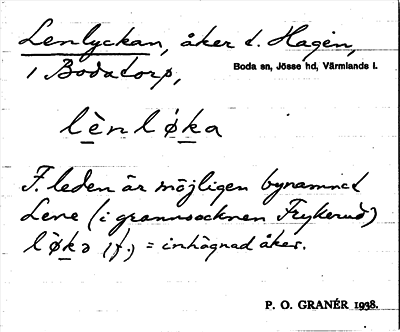 Lenlyckan, åker t. Hagen,
1 Bodatorp,
Boda sn, Jösse hd, Värmlands l.
lènlø̀ka
F. leden är möjligen bynamnet
Lene (i grannsocknen Frykerud)
lø̀kə (f.) = inhägnad åker.
P. O. GRANÉR 1938.